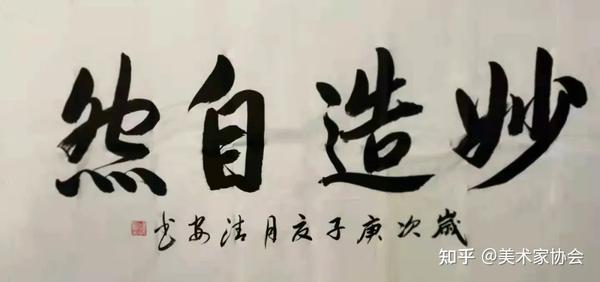 妙造自然
歲次庚子夏月清安书
知乎 @美术家协会